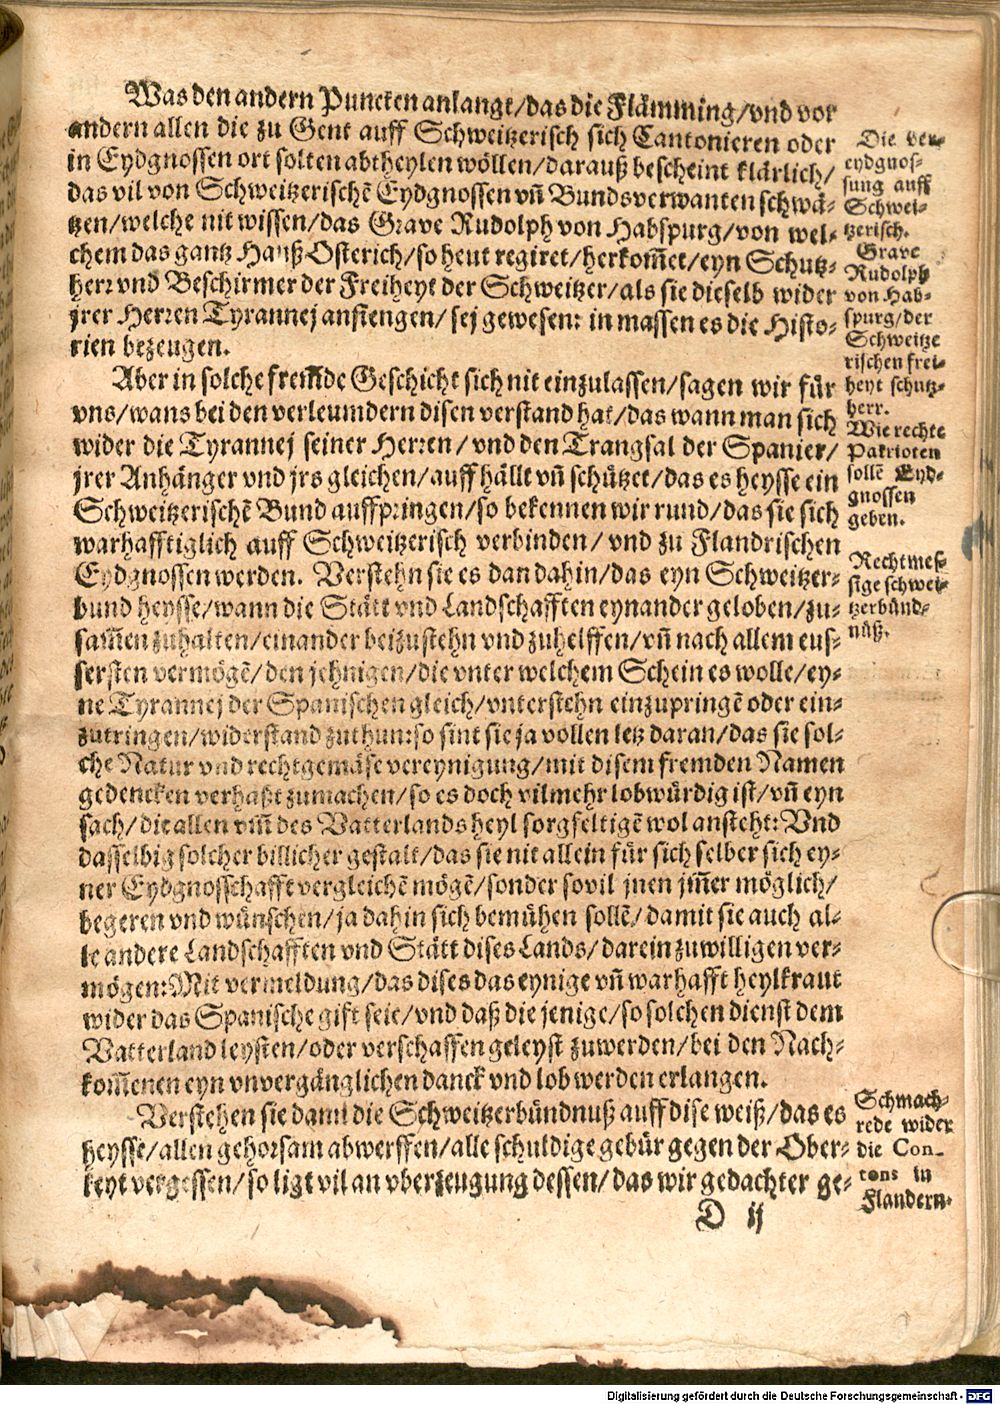 Was den andern Puncten anlangt/das die Flämming/vnd vor
andern allen die zu Gent auff Schweitzerisch sich Cantonieren oder
in Eydgnossen ort solten abtheylen wöllen/darauß bescheint klärlich/
das vil von Schweitzerischē Eydgnossen vñ Bundsverwanten schwä-
tzen/welche nit wissen/das Grave Rudolph von Habspurg/von wel-
chem das gantz Hauß Osterich/so heut regiret/herkom̃et/eyn Schutz-
herr vnd Beschirmer der Freiheyt der Schweitzer/als sie dieselb wider
jrer Herren Tyrannej anfiengen/sej gewesen: in massen es die Histo-
rien bezeugen.
Aber in solche fremde Geschicht sich nit einzulassen/sagen wir für
vns/wans bei den verleumdern disen verstand hat/das wann man sich
wider die Tyrannej seiner Herren/vnd den Trangsal der Spanier/
jrer Anhänger vnd jrs gleichen/auffhällt vñ schützet/das es heysse ein
Schweitzerischē Bund auffpringen/so bekennen wir rund/das sie sich
warhafftiglich auff Schweitzerisch verbinden/vnd zu Flandrischen
Eydgnossen werden. Verstehn sie es dan dahin/das eyn Schweitzer-
bund heysse/wann die Stätt vnd Landschafften eynander geloben/zu-
sam̃en zuhalten/einander beizustehn vnd zuhelffen/vñ nach allem eus-
sersten vermögē/den jehnigen/die vnter welchem Schein es wolle/ey-
ne Tyrannej der Spanischen gleich/vnterstehn einzupringē oder ein-
zutringen/widerstand zuthun: so sint sie ja vollen letz daran/das sie sol-
che Natur vnd rechtgemäse vereynigung/mit disem fremden Namen
gedencken verhaßt zumachen/so es doch vilmehr lobwürdig ist/vñ eyn
sach/die allen vm̃ des Vatterlands heyl sorgfeltigē wol ansteht: Vnd
dasselbig solcher billicher gestalt/das sie nit allein für sich selber sich ey-
ner Eydgnosschafft vergleichē mögē/sonder sovil jnen jm̃er möglich/
begeren vnd wünschen/ja dahin sich bemühen sollē/damit sie auch al-
le andere Landschafften vnd Stätt dises Lands/darein zuwilligen ver-
mögen: Mit vermeldung/das dises das eynige vñ warhafft heylkraut
wider das Spanische gift seie/vnd daß die jenige/so solchen dienst dem
Vatterland leysten/oder verschaffen geleyst zuwerden/bei den Nach-
kom̃enen eyn vnvergänglichen danck vnd lob werden erlangen.
Verstehen sie dann die Schweitzerbündnuß auff dise weiß/das es
heysse/allen gehorsam abwerffen/alle schuldige gebür gegen der Ober-
keyt vergessen/so ligt vil an vberzeugung dessen/das wir gedachter ge-
D ij
Die ver-
eydgnos-
sung auff
Schwei-
tzerisch.
Grave
Rudolph
von Hab-
spurg/der
Schweitze
rischen frei-
heyt schutz-
herr.
Wie rechte
Patrioten
sollē Eyd-
gnossen
geben.
Rechtmes-
sige schwei-
tzerbünd-
nüß.
Schmach-
rede wider
die Con-
tons in
Flandern.
Digitalisierung gefördert durch die Deutsche Forschungsgemeinschaft - DFG